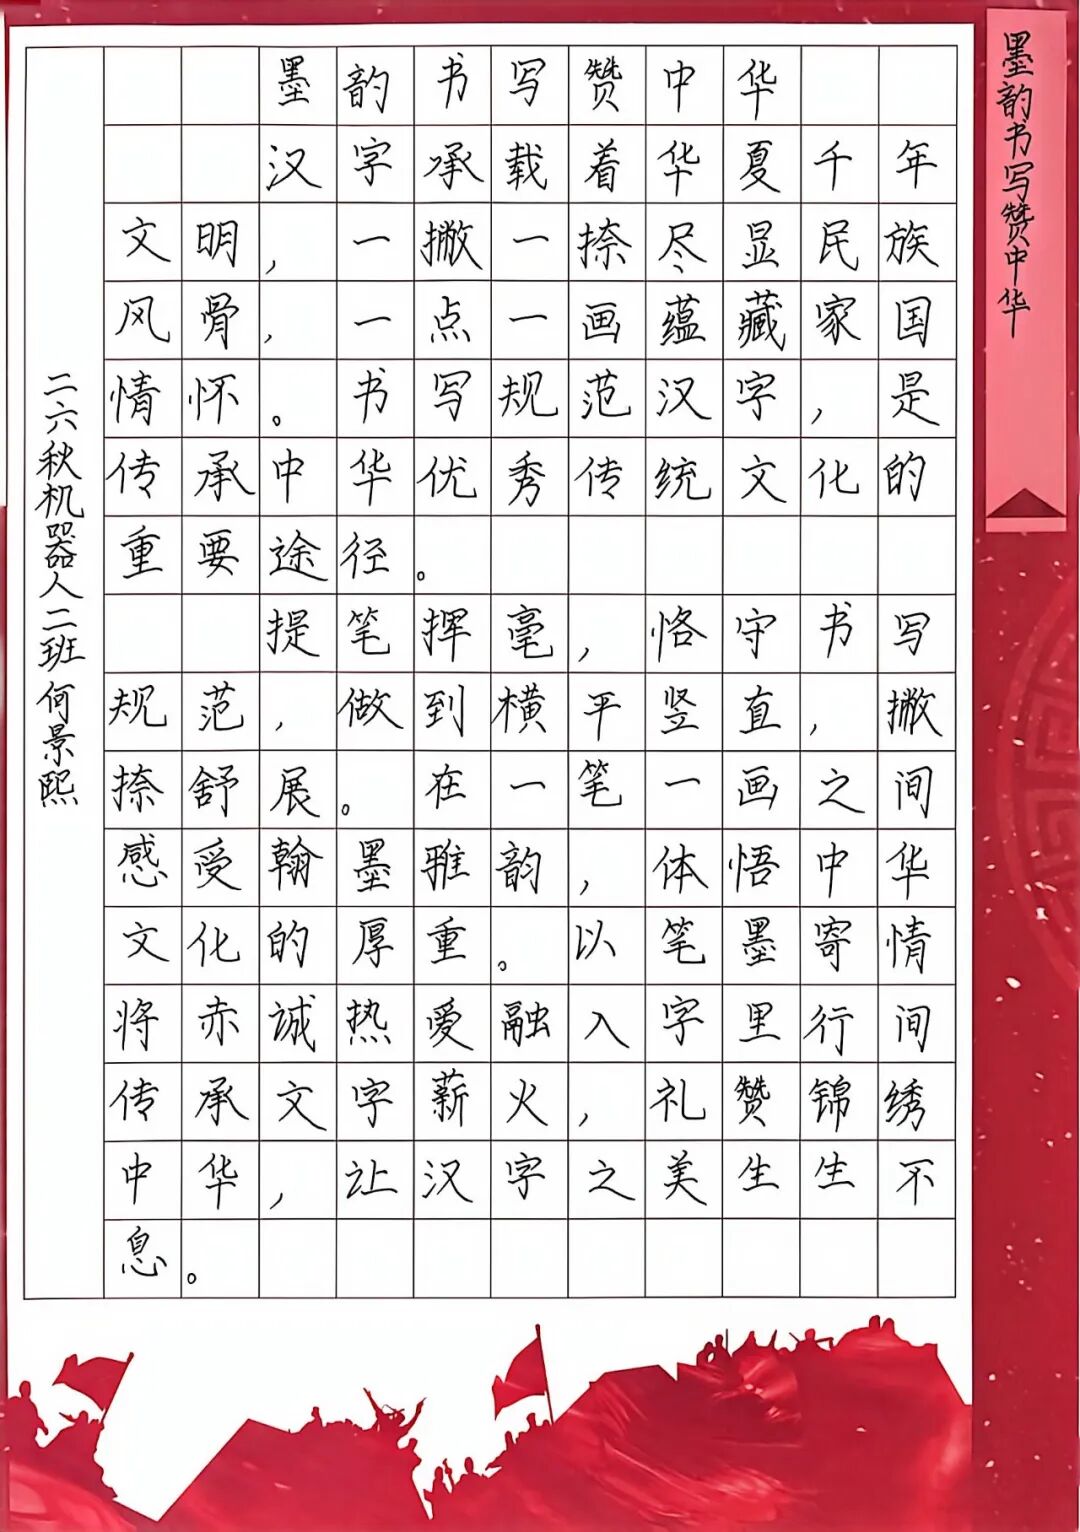 墨韵书写赞中华
汉字承载着华夏千年
文明，一撇一捺尽显民族
风骨，一点一画蕴藏家国
情怀。书写规范汉字，是
传承中华优秀传统文化的
重要途径。
提笔挥毫，恪守书写
规范，做到横平竖直，撇
捺舒展。在一笔一画之间
感受翰墨雅韵，体悟中华
文化的厚重。以笔墨寄情
将赤诚热爱融入字里行间
传承文字薪火，礼赞锦绣
中华，让汉字之美生生不
息。
二六秋机器人二班何景熙
墨韵书写赞中华